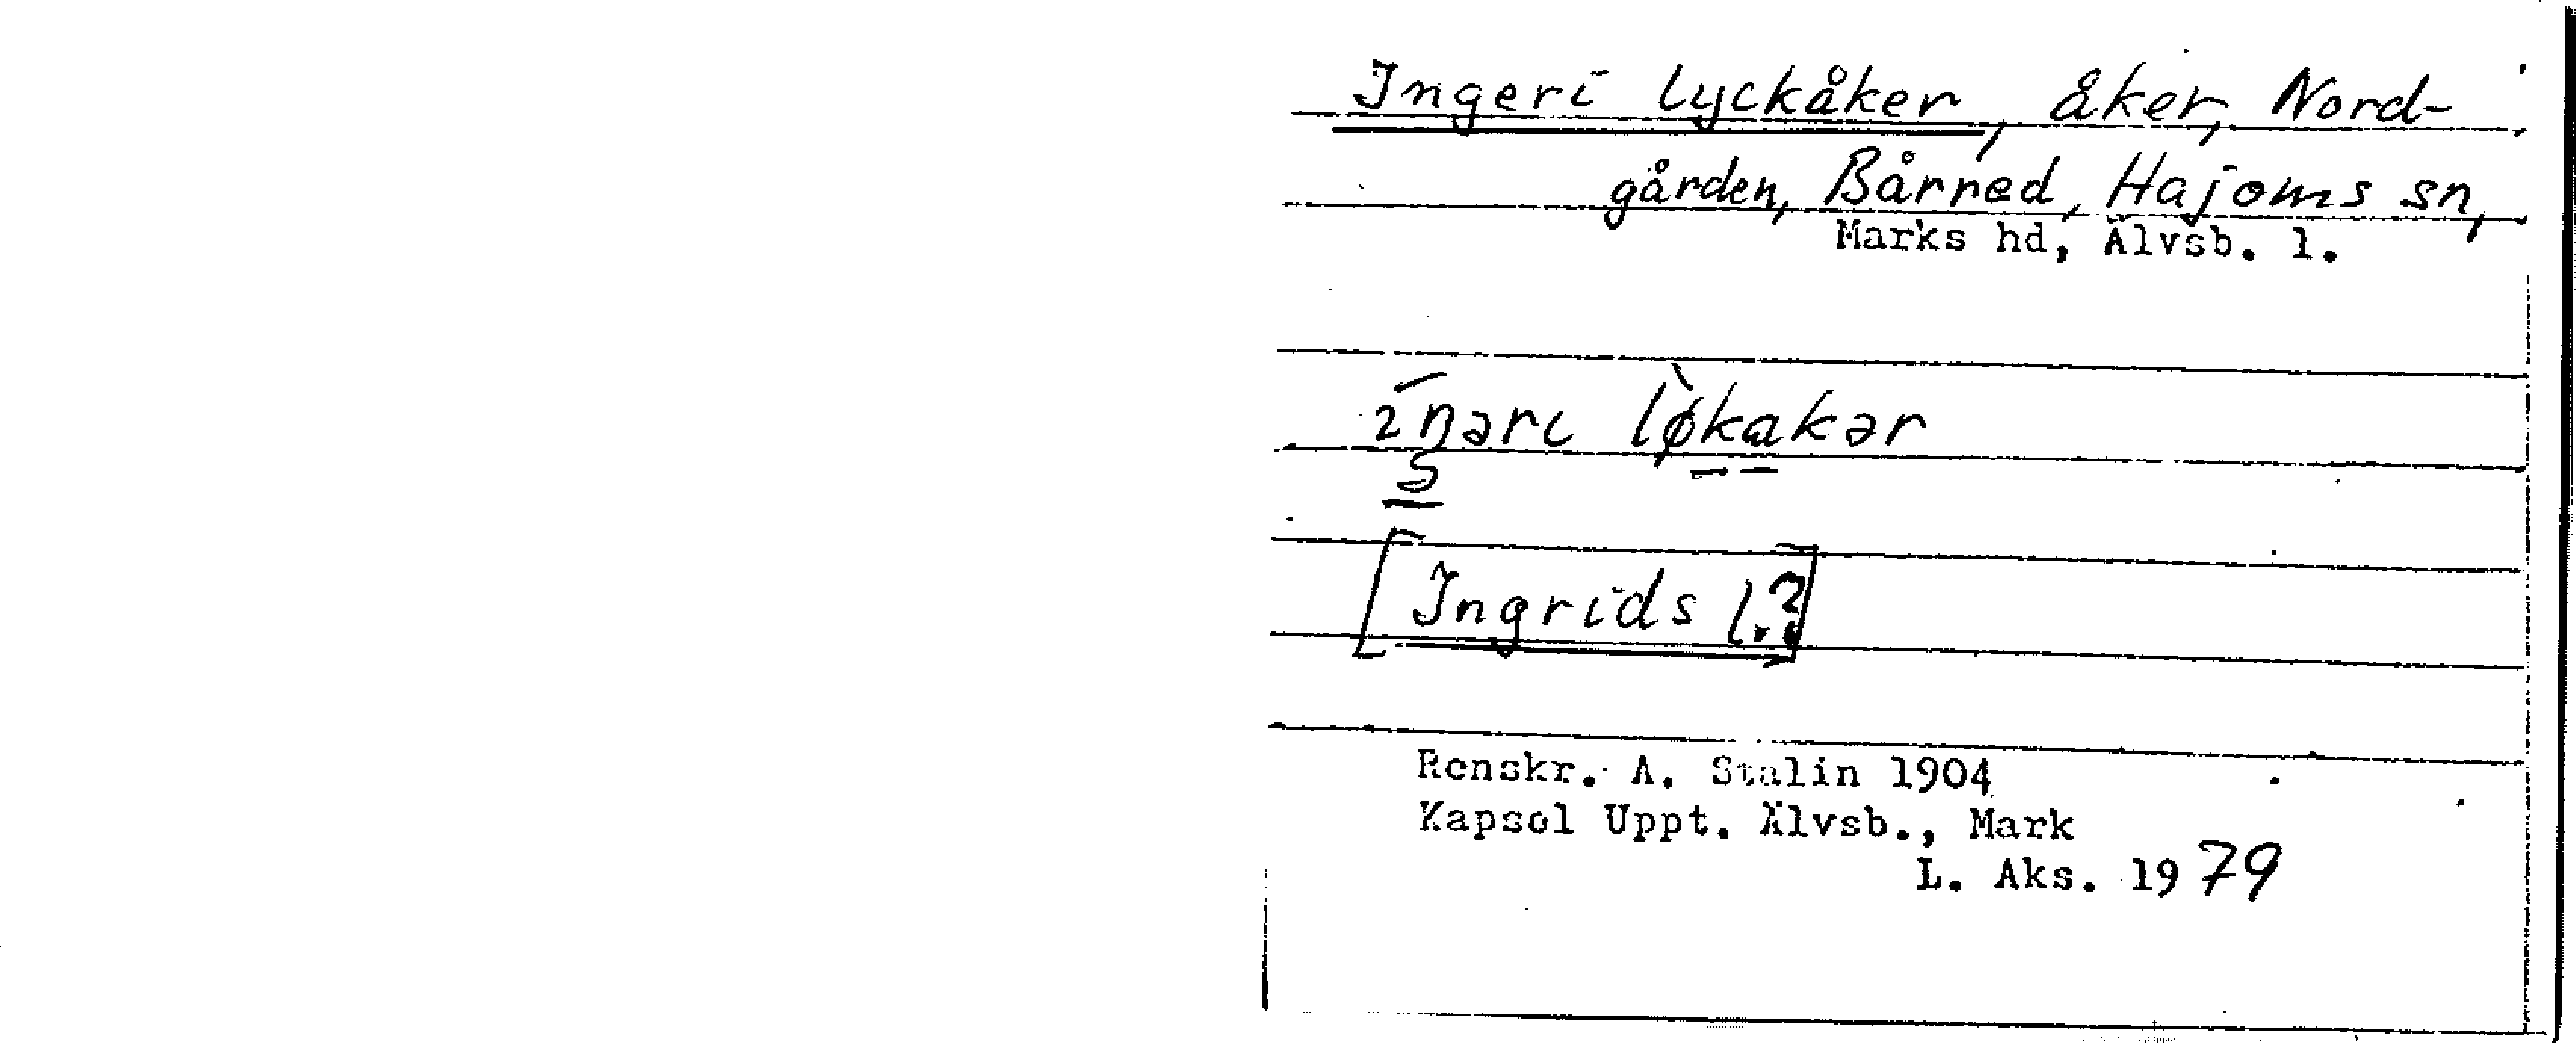 Ingeri lyckåker, åker, Nord-
gården, Bårred, Hajoms sn,
Marks hd, Älvsb. l.
iŋəri lø̀kakər
[Ingrids l.?]
Renskr. A. Stalin 1904
Kapsel Uppt. Älvsb., Mark
L. Aks. 1979